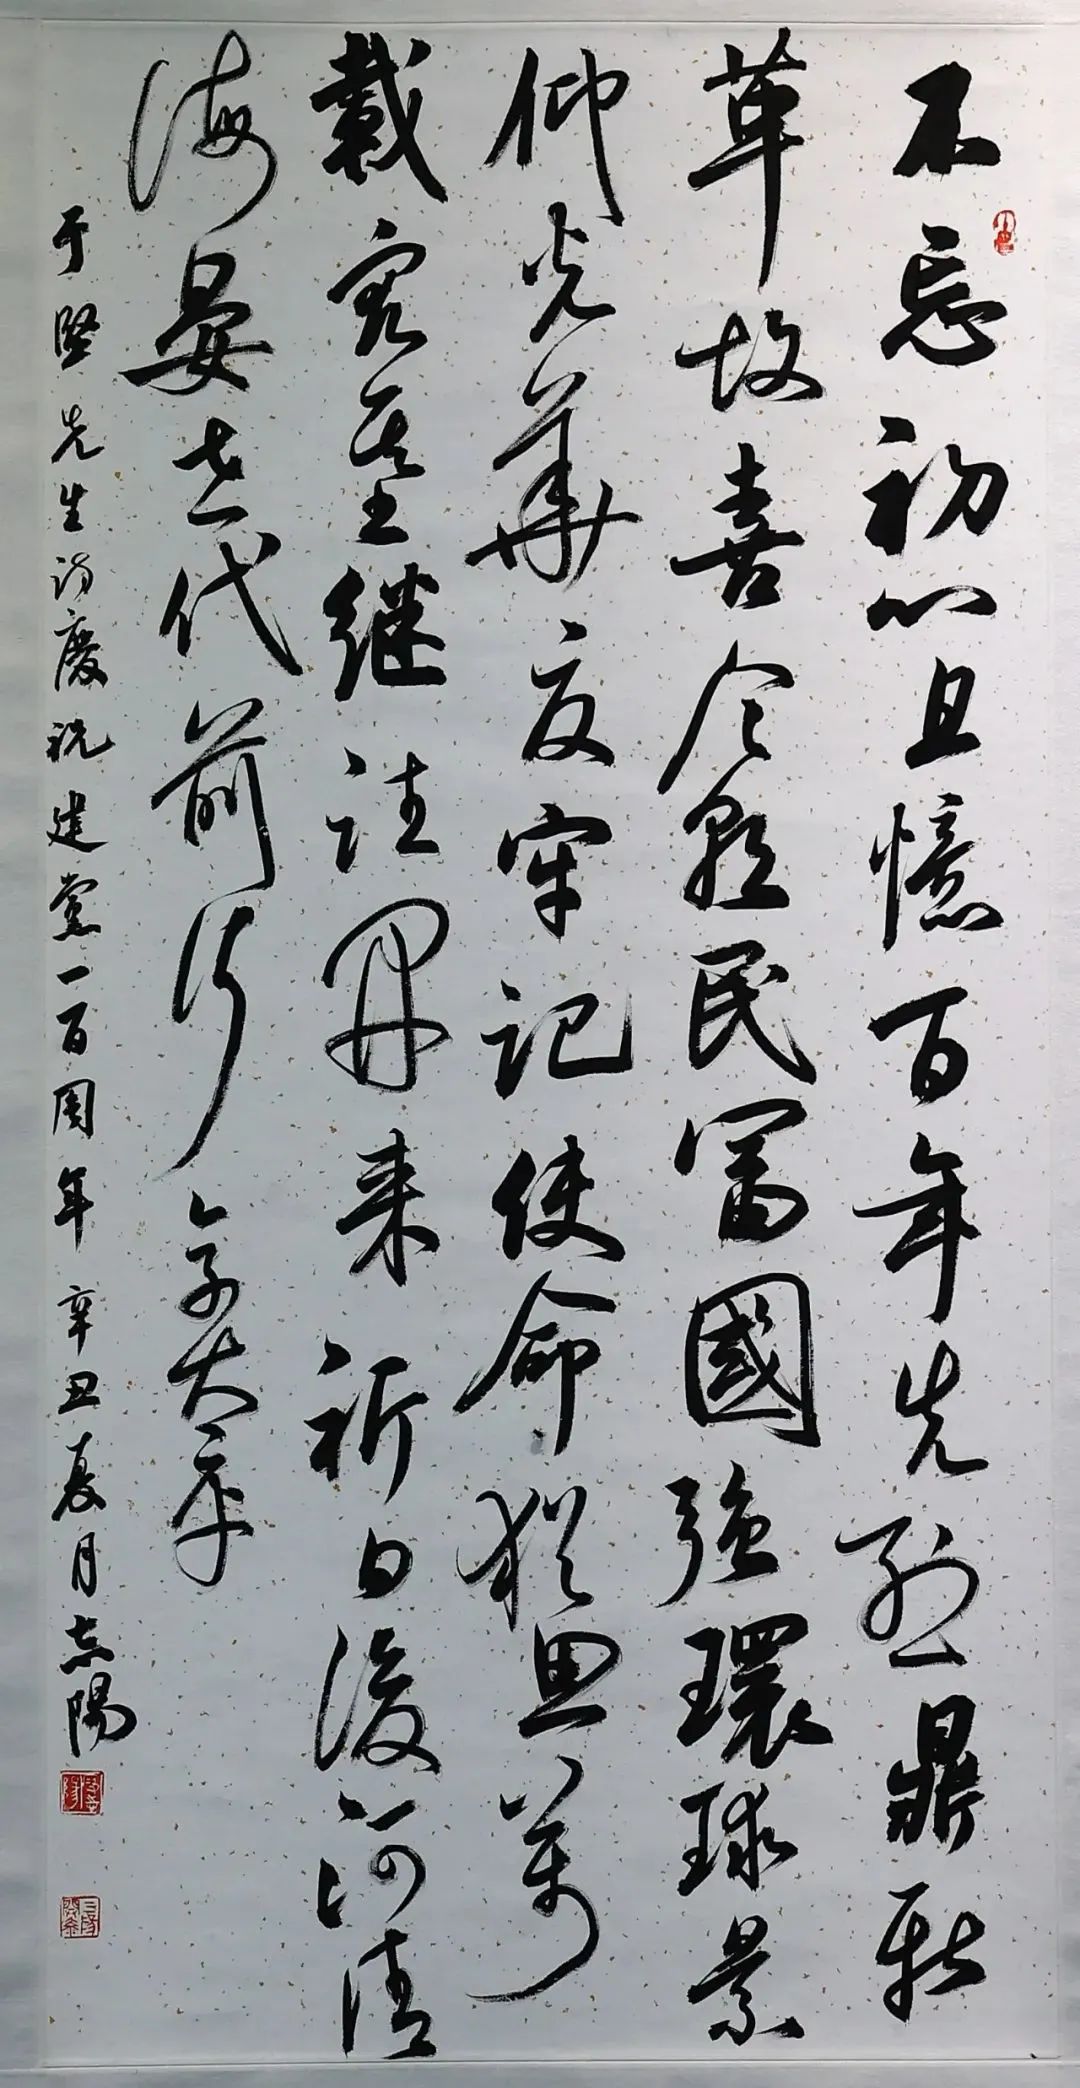 不忘初心且憶百年先烈鼎新
革故喜今朝民富國強環球景
仰光華夏牢記使命猶思萬
載宏基继往開来祈日後河清
海晏世代前行享太平
于堅先生詩慶祝建黨一百周年 辛丑夏月志陽